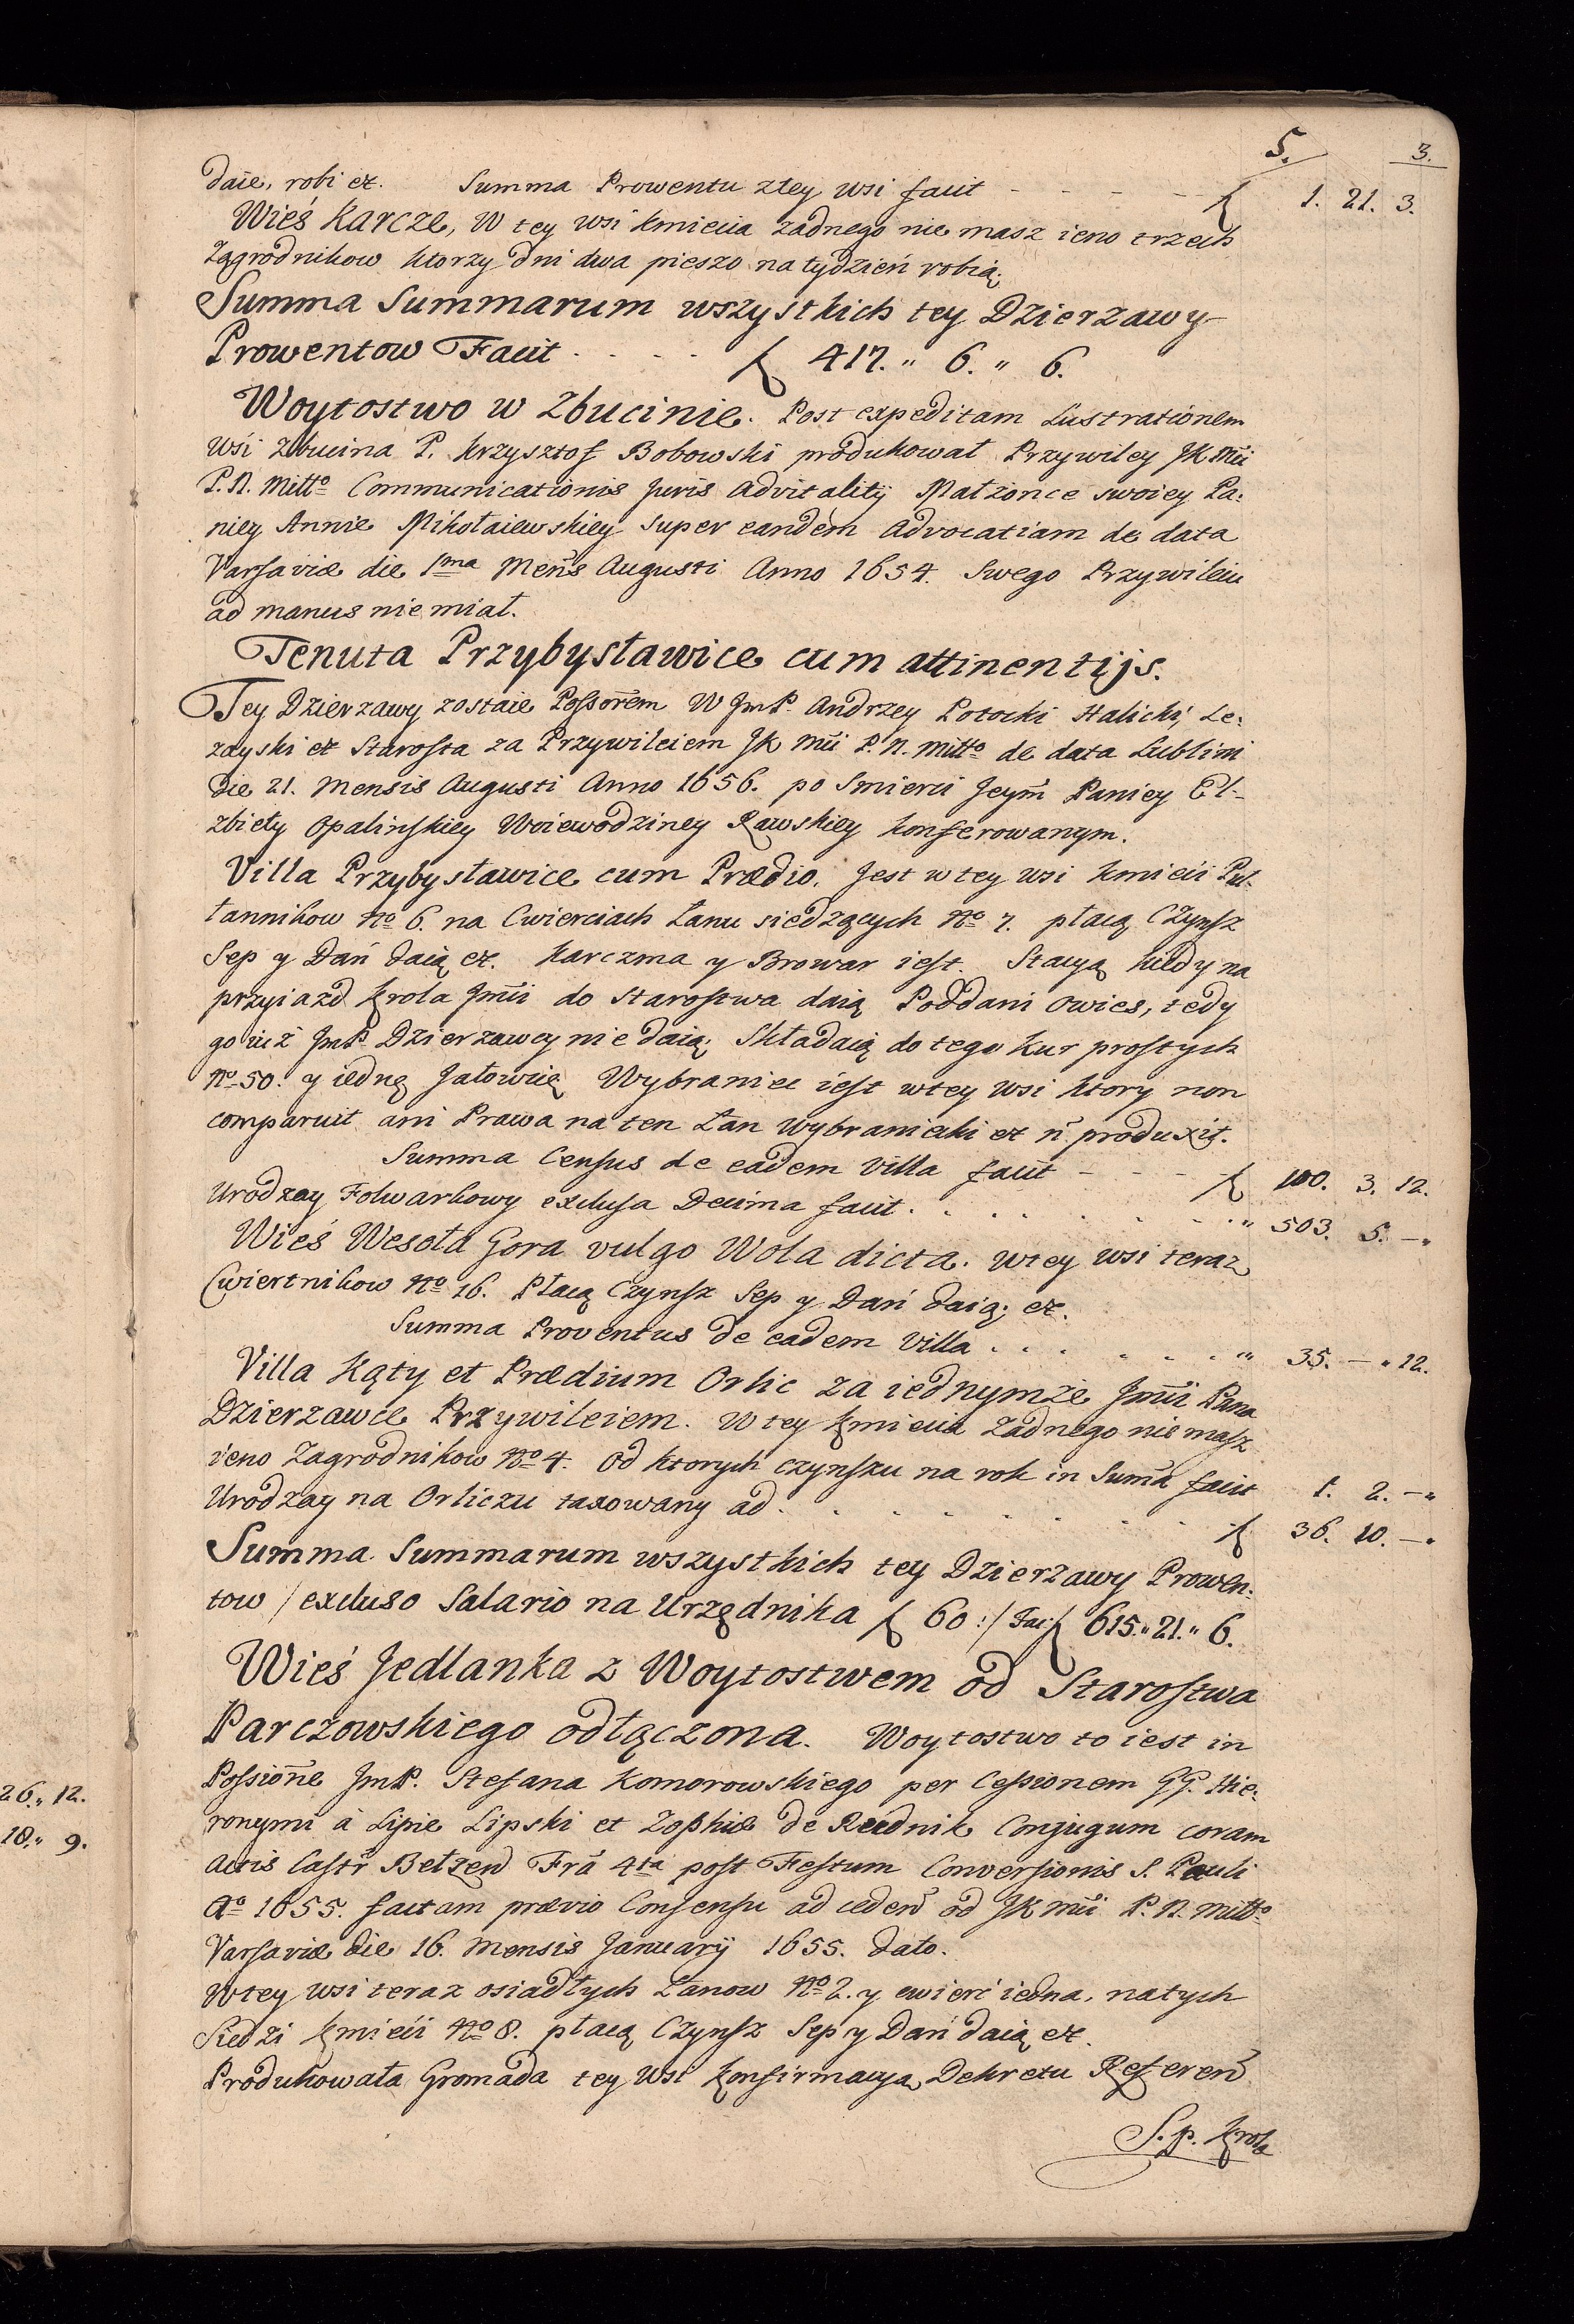 5. 3.
daie, robi ez. Summa Prowentu z tey wsi facit - - - - ƒ 1. 21. 3.
Wieś Karcze, W tey wsi kmiecia żadnego nie masz ieno trzech
Zagrodnikow ktorzy dni dwa pieszo na tydzień robią.
Summa Summarum wszystkich tey Dzierzawy
Prowentow Facit . . . . ƒ 417. " 6. " 6.
Woytostwo w Zbucinie. Post expeditam Lustrationem
wsi Zbucina P. Krzysztof Bobowski produkował Przywiley JK Mci
P. N. Mitto Communicationis Juris advitalitij Małżonce swoiey Pa:
niey Annie Mikołaiewskiey super eandem advocatiam de data
Varsaviæ die 1ma Mens Augusti Anno 1654. Swego Przywileiu
ad manus nie miał.
Tenuta Przybysławice cum attinentijs.
Tey Dzierzawy zostaie Possorem W JmP. Andrzey Potocki Halicki, Le:
zayski et Starosta za Przywileiem JK Mci P. N. Mitto de data Lublini
die 21. Mensis Augusti Anno 1656. po Smierci Jeym Paniey El-
zbiety Opalinskiey Woiewodziney Rawskiey konferowanym.
Villa Przybysławice cum Prædio. Jest w tey wsi kmieci Puł-
łannikow No 6. na Cwierciach Łanu siedzących No 7. płacą Czynsz
Sep y Dań daią ez. Karczma y Browar iest. Stacyą kiedy na
przyiazd Krola Jmci do Starostwa daią Poddani owies, tedy
go iuż JmP Dzierzawcy nie daią. Składaią do tego Kur prostych
No 50. y iedną Jałowicę Wybraniec iest w tey wsi ktory non
comparuit ani Prawa na ten Łan Wybraniecki ez n produxit.
Summa Census de eadem Villa facit - - - - ƒ 100. 3. 12.
Urodzay Folwarkowy exclusa Decima facit . . . . . . . . " 503. 5. —"
Wieś Wesoła Gora vulgo Wola dicta. W tey wsi teraz
Cwiertnikow No 16. Płacą Czynsz Sep y Dań daią, ez.
Summa Proventus de eadem Villa . . . . . . . " 35. — " 12.
Villa Kąty et Prædium Orlic za iednymże Jmci Pana
Dzierzawce Przywileiem. W tey kmiecia Żadnego nie masz
ieno Zagrodnikow No 4. od ktorych czynszu na rok in Suma facit 1. 2. —"
Urodzay na Orliczu taxowany ad . . . . . . . . . ƒ 36. 10. —"
Summa Summarum wszystkich tey Dzierzawy Prowen:
tow / excluso Salario na Urzędnika ƒ 60 :/ Fac: ƒ 615." 21." 6.
Wieś Jedlanka z Woytostwem od Starostwa
Parczowskiego odłączona. Woytostwo to iest in
Possione JmP. Stefana Komorowskiego per Cessionem GG. Hie:
ronymi à Lipie Lipski et Zophiæ de Rudnik Conjugum coram
Actis Castr Bełzen Fra 4ta post Festum Conversionis S. Pauli
Ao 1655. factam prævio Consensu ad ceden od JK Mci P. N. Mitto
Varsaviæ die 16. Mensis Januarij 1655. dato.
W tey wsi teraz osiadłych Łanow No 2. y cwierć iedna, na tych
Siedzi kmieci No 8. płacą Czynsz Sep y Dań daią ez.
Produkowała Gromada tey Wsi konfirmacyą Dekretu Referen
S. p. Krola
26." 12.
18." 9.